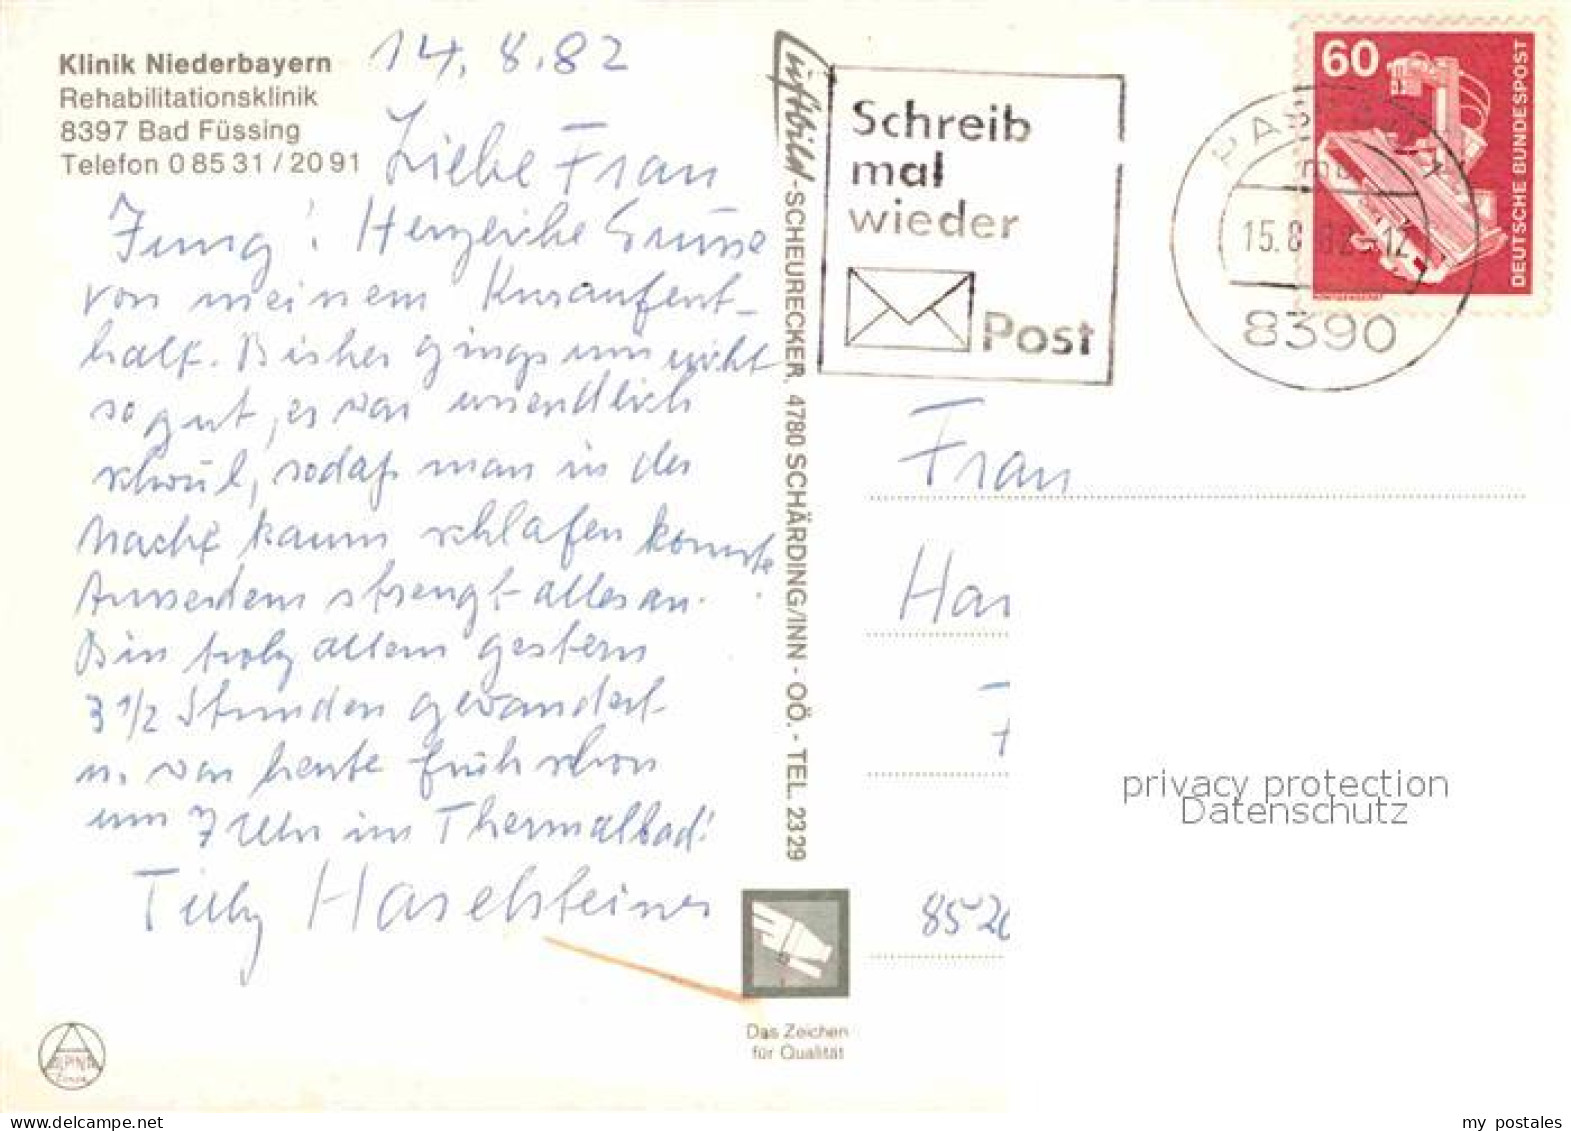 Klinik Niederbayern
Rehabilitationsklinik
8397 Bad Füssing
Telefon 0 85 31 / 20 91
14. 8. 82
Liebe Frau
Jung! Herzliche Grüsse
von meinem Kuraufent-
halt. Bisher gings mir nicht
so gut, es war unendlich
schwül, sodaß man in der
Nacht kaum schlafen konnte.
Ausserdem strengt alles an.
Bin trotz allem gestern
3 1/2 Stunden gewandert
u. war heute früh schon
um 7 Uhr im Thermalbad!
Tilly Haselsteiner
ALPINA
Luftbild-SCHEURECKER, 4780 SCHÄRDING/INN - OÖ. - TEL. 2329
Das Zeichen
für Qualität
Schreib
mal
wieder
Post
15.8.82-12
8390
60
DEUTSCHE BUNDESPOST
Frau
privacy protection
Datenschutz
8520
delcampe.net
my_postales